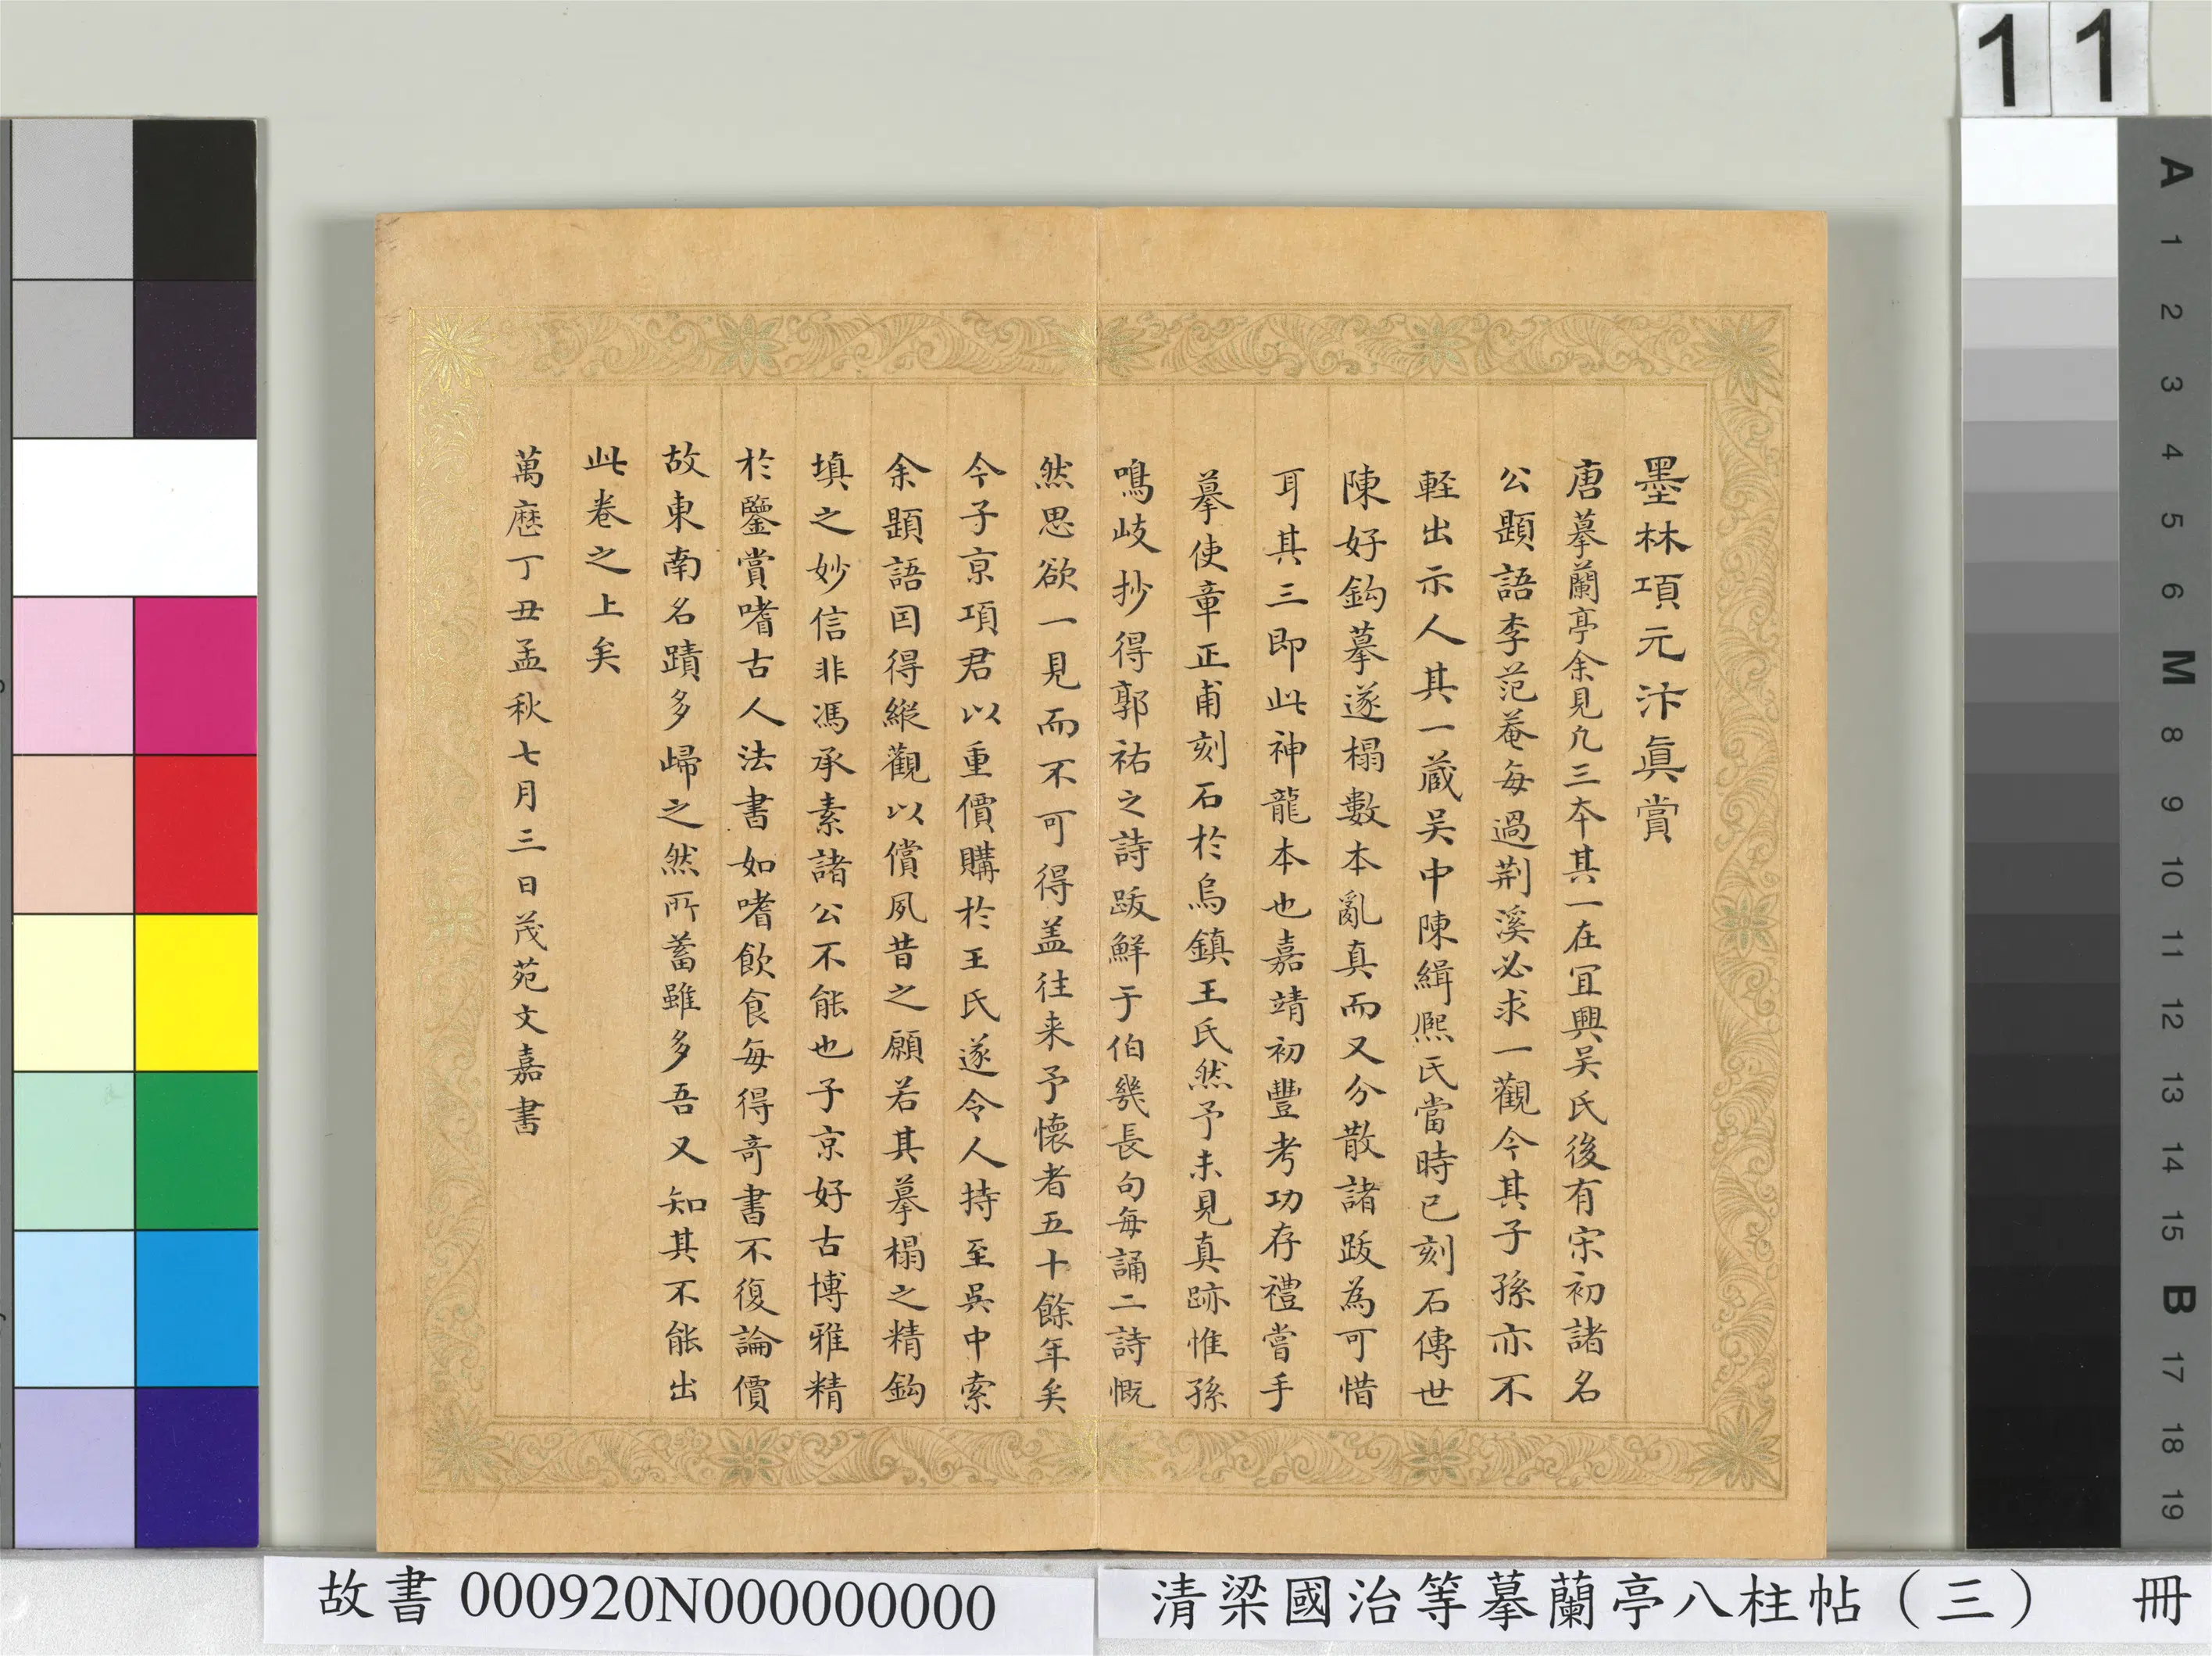 11
墨林項元汴眞賞
唐摹蘭亭余見凢三本其一在宜興吴氏後有宋初諸名
公題語李范菴每過荆溪必求一觀今其子孫亦不
軽出示人其一蔵吴中陳緝熈氏當時已刻石傳世
陳好鈎摹遂榻數本亂真而又分散諸跋為可惜
耳其三即此神龍本也嘉靖初豐考功存禮嘗手
摹使章正甫刻石於烏鎮王氏然予未見真跡惟孫
鳴岐抄得郭祐之詩跋鮮于伯幾長句每誦二詩慨
然思欲一見而不可得盖往来予懷者五十餘年矣
今子京項君以重價購於王氏遂令人持至吳中索
余題語因得縱觀以償夙昔之願若其摹榻之精鈎
填之妙信非馮承素諸公不能也子京好古博雅精
於鑒賞嗜古人法書如嗜飲食每得奇書不復論價
故東南名蹟多歸之然所蓄雖多吾又知其不能出
此卷之上矣
萬厯丁丑孟秋七月三日茂苑文嘉書
A
1
2
3
4
5
6
M
8
9
10
11
12
13
14
15
B
17
18
19
故書 000920N000000000
清梁國治等摹蘭亭八柱帖（三） 冊